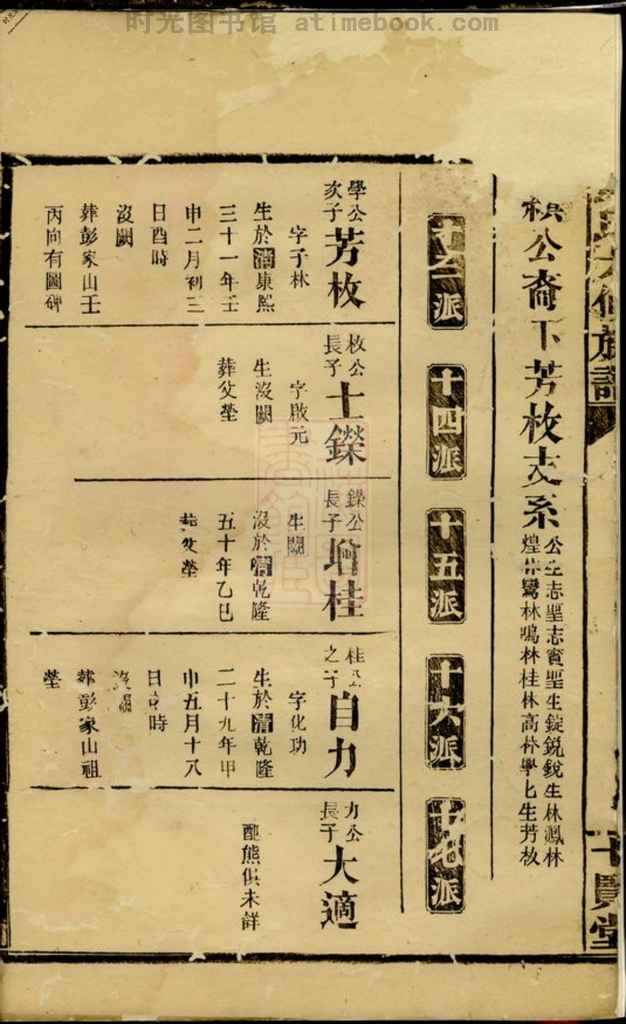 时光图书馆 atimebook.com
公裔下芳枚支系
公生志聖志賓聖生錠鋭銳生林鳳林
煌林鸞林鳴林桂林高林學七生芳枚
派
十四派
十五派
十六派
派
學公
次子
芳枚
字子林
生於清康熙
三十一年壬
申二月初三
日酉時
沒闕
葬彭家山壬
丙向有圖碑
枚公
長子
士鑅
字啟元
生沒闕
葬父塋
鑅公
長子
桂
生闕
沒於清乾隆
五十年乙巳
葬父塋
桂公
之子
自力
字化功
生於清乾隆
二十九年甲
申五月十八
日 時
沒闕
葬彭家山祖
塋
力公
長子
大適
配熊俱未詳
族譜
賢堂